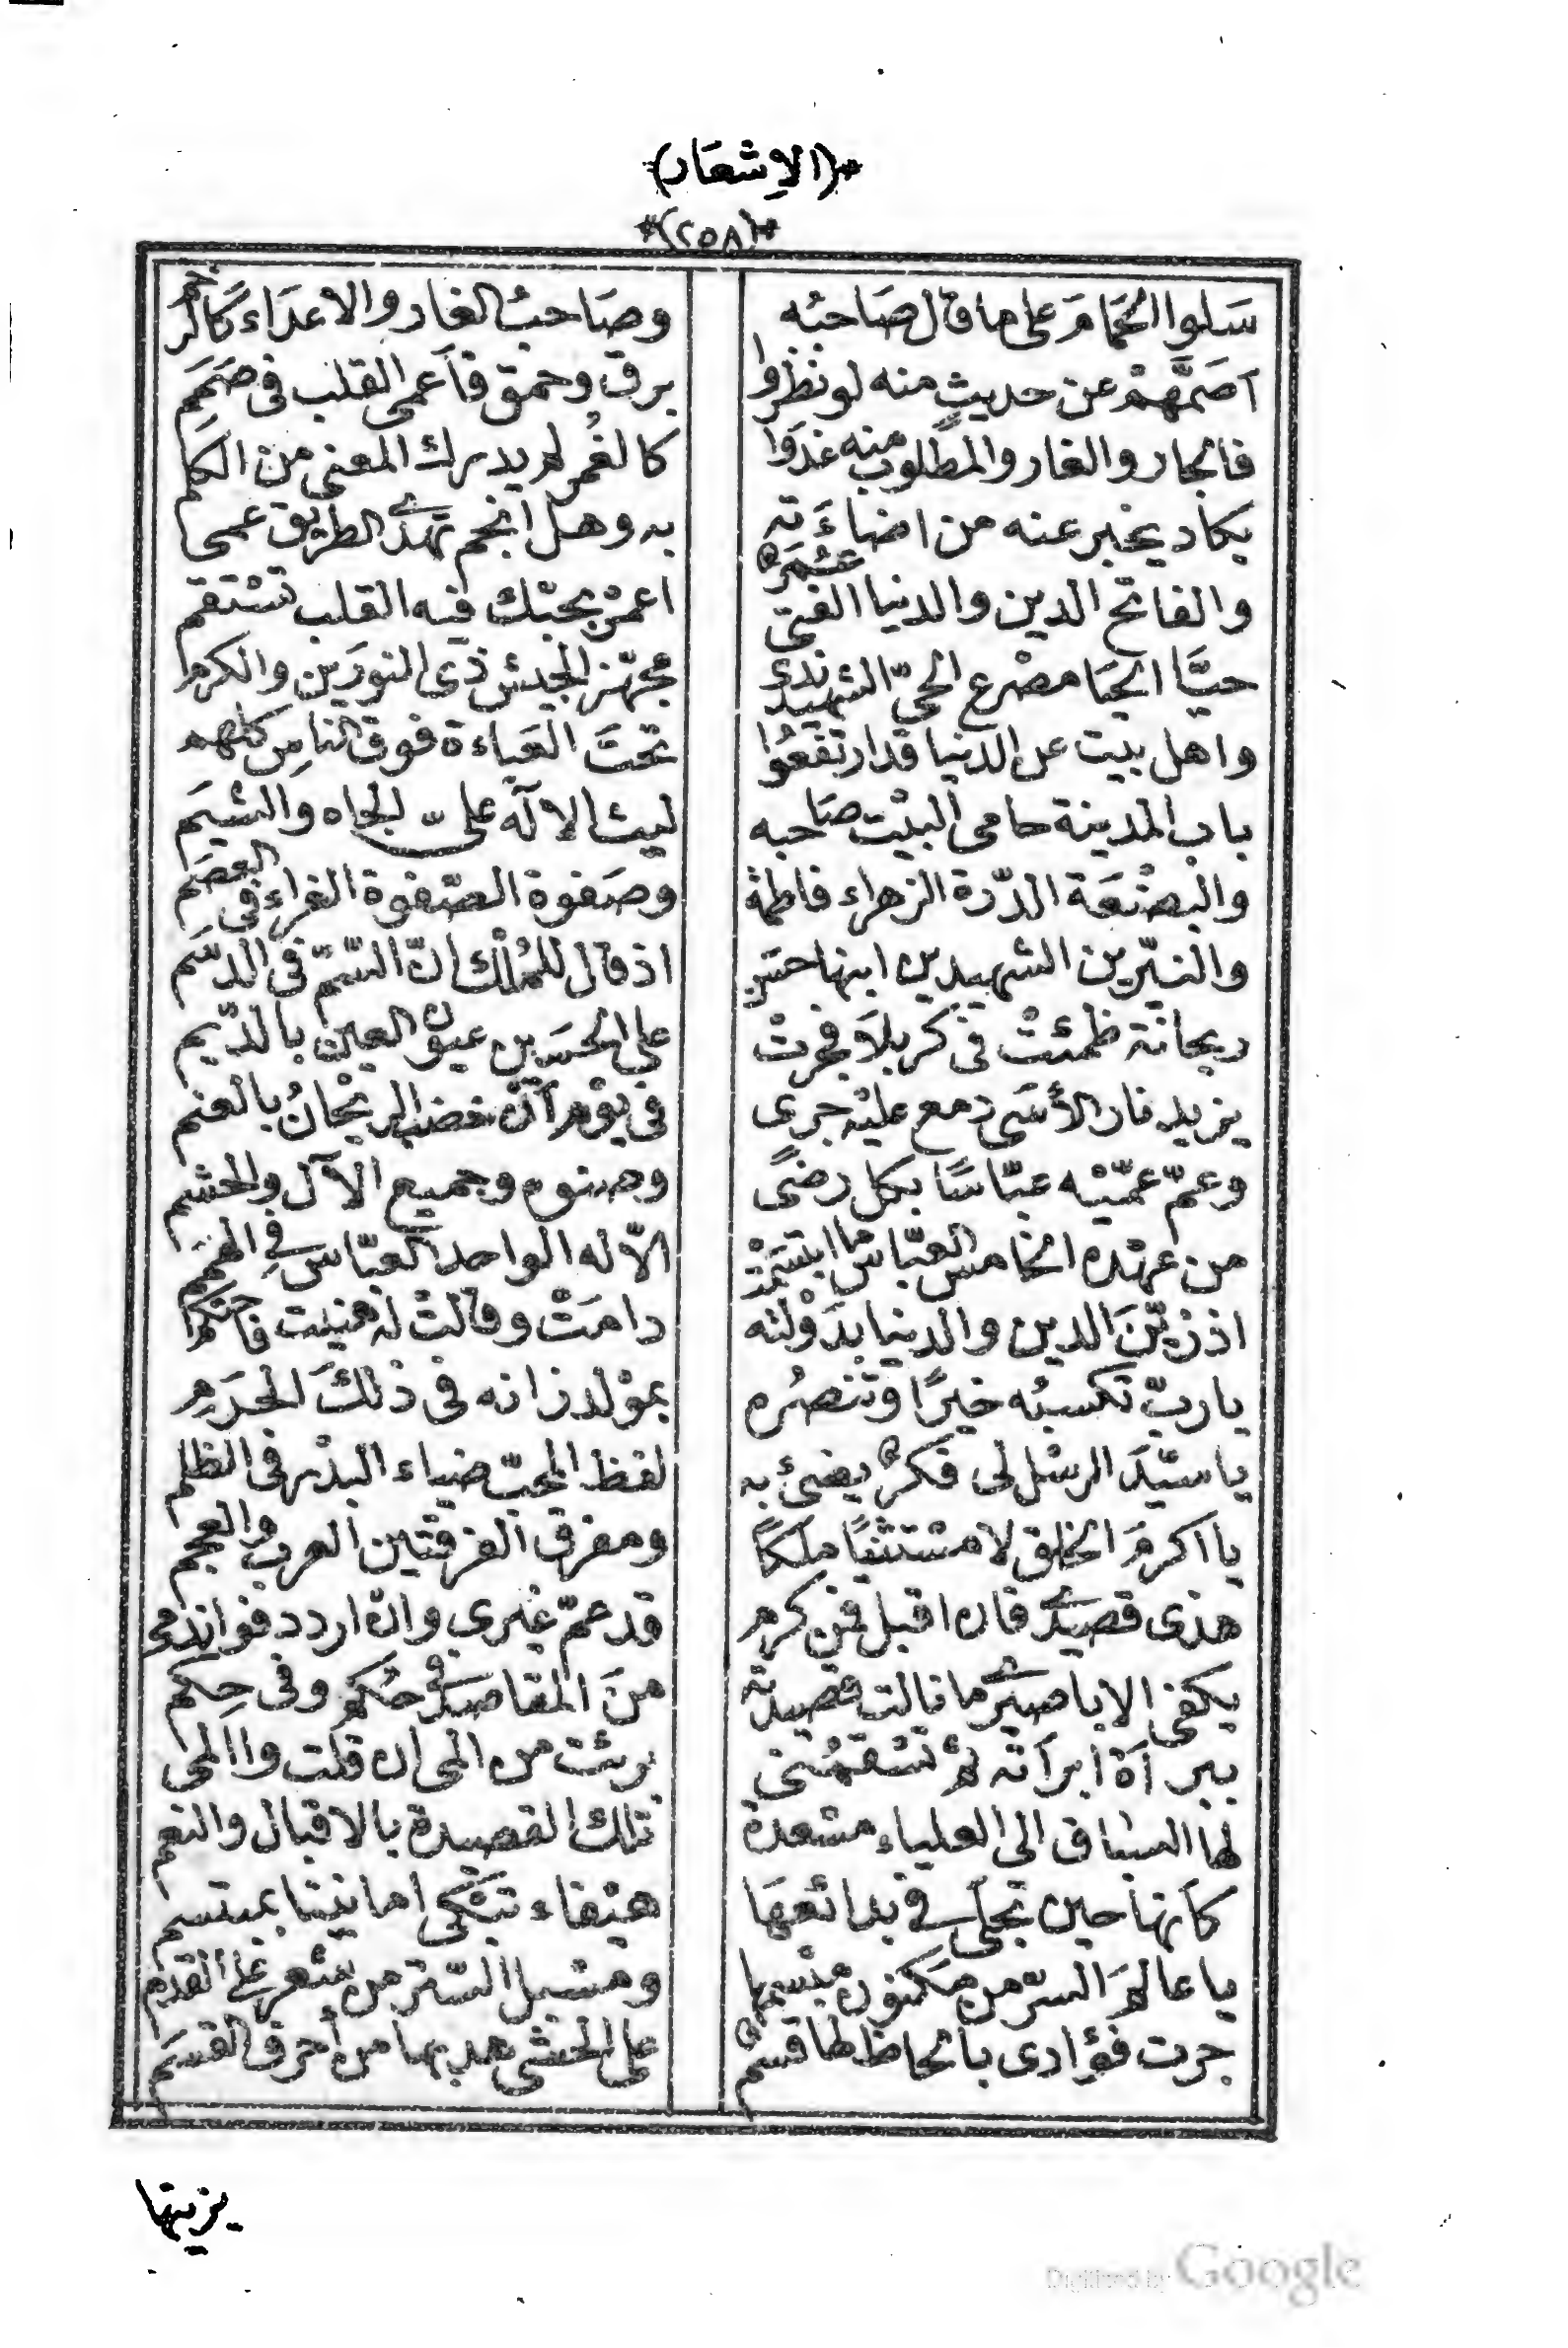 *(الاِشعَار)*
*(٢٥٨)*
سَلوا الحَمامَ على ما قال صَاحبُه
وصَاحبُ الغار والاعدَاء كَالرخَمِ
اصَمَّهمْ عن حديثٍ منه لو نظروا
برق وحمق فاَعمى القلب فى صَمَمِ
فالجار والغار والمطلوب منه غدَوا
كالغُمر لم يدرك المعنى من الكلم
يكاد يخبر عنه من اضاءَته
به وهل انجم تهدى الطريق عمى
والفاتح الدين والدنيا الفتى عُمَرٌ
اعمرْ بحبّك فيه القلب تستقم
حيَّا الحيَا مصْرع الحىّ الشهيد ندى
مجهّز الجيش ذى النورَين والكرم
واهل بيت عن الدنيا قد ارتفعُوا
تحتَ العَباءة فوق الناسِ كلهم
باب المدينة حامى البيْت صَاحبه
ليث الالٓه علىّ الجاه والشيَم
والبضْعَة الدّرة الزهراء فاطمة
وصَفوة الصّفوة الغراء فى العصَم
والنيّرين الشهيدين ابنها حسَنٍ
اذ قال للمُلْك انّ السّمّ فى الدسَم
ريحانة ظمئتْ فى كربلاَ فجرتْ
على الحسَين عيون العين بالدّيم
يزيد نار الأسَى دمع عليْه جرى
فى يوْم آن خضب الريحانُ بالعنم
وعمّ عمّيْه عبّاسًا بكل رضًى
وصنوه وجميع الآل والحشم
من عهْده الخامس العبّاس ما ابتسَمتْ
الّا له الواحد العبّاس فى الهمَم
اذ زيّنَ الدين والدنيا بدَوْلته
دامَتْ وقالتْ له هنيت فاحتكم
يا ربّ تكسبُه خيرًا وتنصُره
بموْلد زانه فى ذلكَ الحرَمِ
يا سيّدَ الرسْل لى فكرٌ يضئ به
لفظ المحبّ ضياء البدْر فى الظلم
يا اكرمَ الخلق لا مسْتثنيًا ملكًا
ومفرق الفرقتين العرب والعجم
هذى قصيدتى فان اقبل فمن كرم
قد عمّ غيرى وان اردد فواندمى
يكفى الاباصيرى ما نالت قصيدته
منَ المقاصد فى حُكم وفى حِكم
ببرأة ابرأته لم تسْقمْنى
برئت من المى ان قلت وا المى
لها السباق الى العلياء مسْعدة
تلك القصيدة بالاقبال والنعم
كأنها حين تجلى فى بدائعهَا
هيْفاء تبكى امانينا بمبتسم
يا عالمَ السرّ من مكنون مبْسمها
ومسْبل السّتر من شعر على القدم
جرت فؤادى بالحاظ لها قسمٌ
على الحشى هدبها من أحرف القسَم
يزينها
Digitized by Google